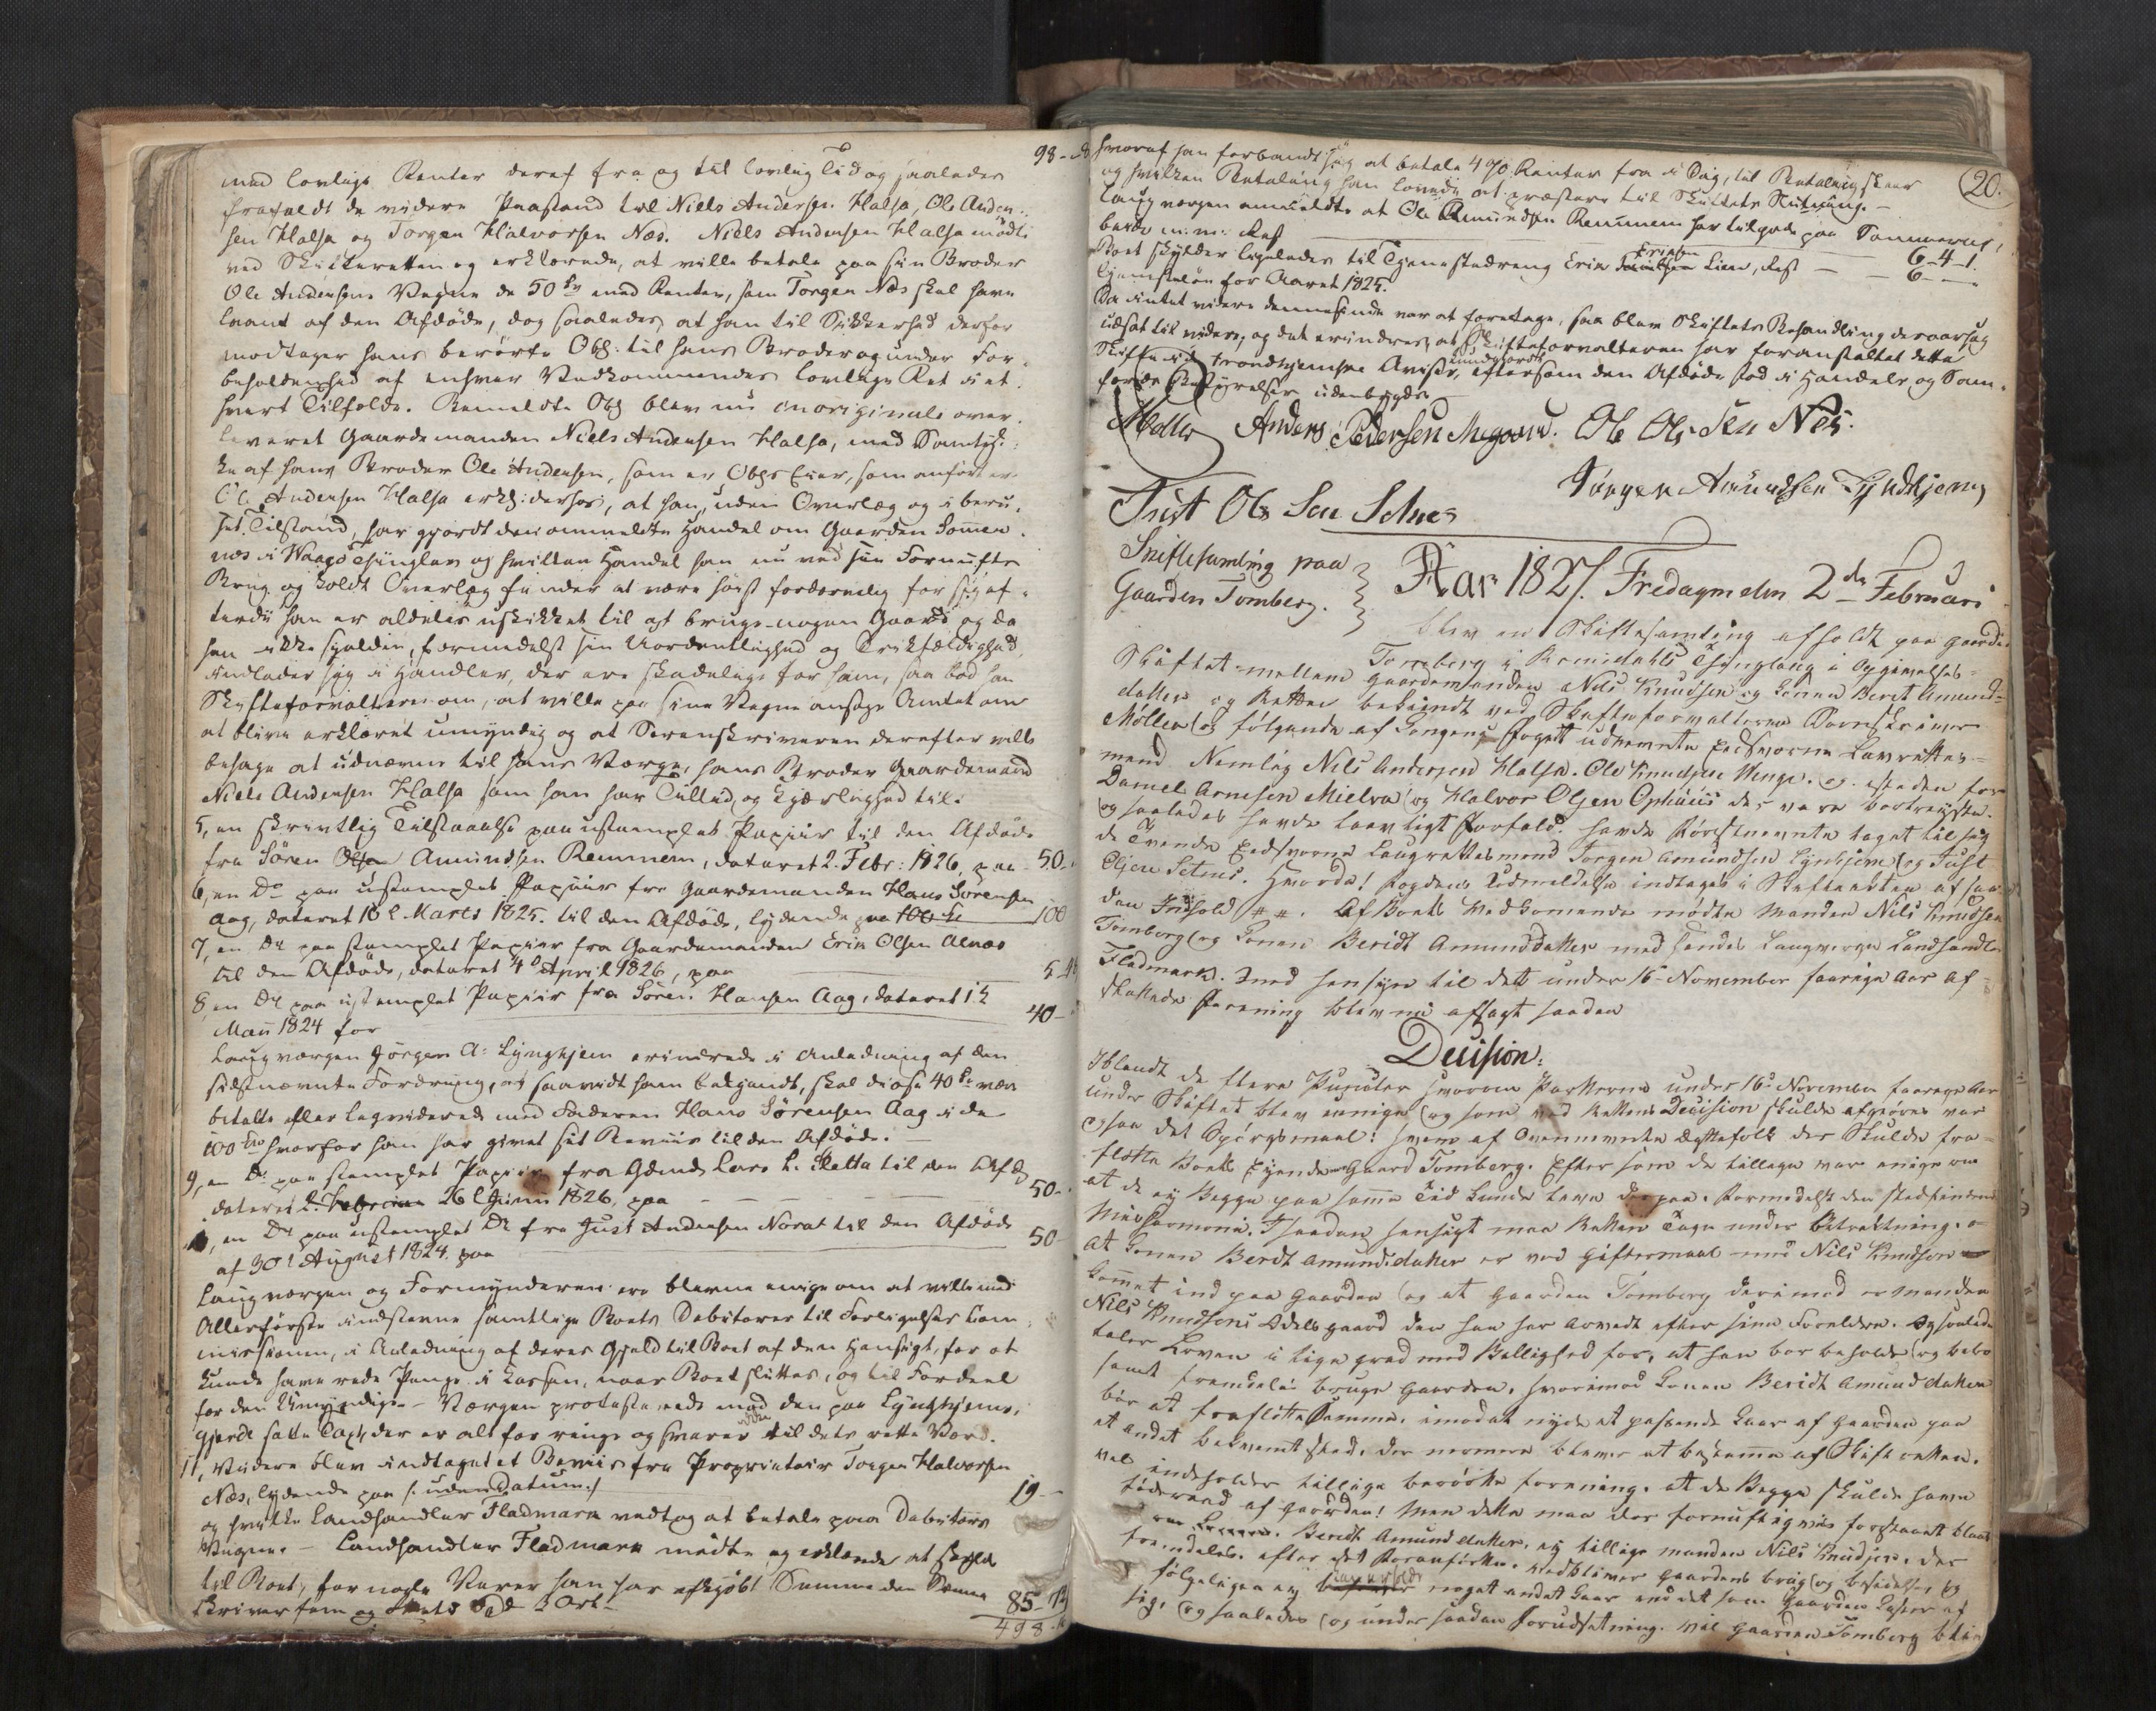 98-8
med lovlige Renter deraf fra og til lovlig Tid og saaledes
frafaldt de videre Paastand til Niels Andersen Halsa, Ole Ander-
sen Halsa og Torgen Halvorsen Næs. Niels Andersen Halsa mødte
ved Skifteretten og erklærede, at ville betale paa sin Broder
Ole Andersens Vegne de 50 Sp med Renter, som Torgen Næs skal have
laant af den Afdøde, dog saaledes, at han til Sikkerhed derfor
modtager hans berørte Obl: til hans Broder og under For-
beholdenhed af enhver Vedkommendes lovlige Ret i et-
hvert Tilfælde. Bemeldte Obl blev nu in originale over-
leveret Gaardemanden Niels Andersen Halsa, med Samtyk-
ke af hans Broder Ole Andersen, som er Obls Eier, som anført er.
Ole Andersen Halsa erkl: derhos, at han, uden Overlæg og i beru-
set Tilstand, har gjordt den ommeldte Handel om Gaarden Sommer-
næs i Waagø Thinglav og hvilken Handel han nu ved sin Fornufts
Brug og koldt Overlæg finder at være høist fordærvelig for sig ef-
terdi han er aldeles uskikket til at bruge nogen Gaard og da
han ikke sjelden, formedelst sin Uordentlighed og Trikfældighed,
indlader sig i Handler, der ere skadelige for ham, saa bad han
Skifteforvalteren om, at ville paa sine Vegne ansøge Amtet om
at blive erklæret umyndig og at Sorenskriveren derefter vilde
behage at udnævne til hans Værge, hans Broder Gaardemand
Niels Andersen Halsa som han har Tillid og Kjærlighed til.
5, en skrivtlig Tilstaaelse paa ustemplet Papiir til den Afdøde
fra Søren Amundsen Remmem, dateret 2. Febr: 1826, paa - 50-
6, en Do paa ustemplet Papiir fra Gaardemanden Hans Sørensen
Aag, dateret 16 Marts 1825. til den Afdøde, lydende paa 100
7, en Do paa stemplet Papiir fra Gaardemanden Erik Olsen Alnæs
til den Afdøde, dateret 4 April 1826, paa
8, en Do paa ustemplet Papiir fra Søren Hansen Aag, dateret 12
Maii 1824 for 40-
Laugværgen Jørgen A: Lynghjem erindrede i Anledning af den
sidstnævnte Fordring, at saavidt ham bekjendt, skal disse 40 Sp være
betalte eller liqvideret med Faderen Hans Sørensen Aag i de
100 Sp hvorfor han har givet sit Beviis til den Afdøde.
9, en Do paa stemplet Papiir fra Gdmd Lars L. Sletta til den Afd
dateret 26 Junii 1826, paa - - - 50-
en Do paa ustemplet Do fra Just Andersen Norat til den Afdøde
af 30 August 1824. paa 50-
Laugværgen og Formynderen ere blevne enige om at ville med
Allerførste indstevne samtlige Boets Debitorer til Forligelses Com-
missionen, i Anledning af deres Gjeld til Boet af den Hensigt, for at
kunde have rede Penge i Kassen, naar Boet sluttes, og til Fordeel
for den Umyndige. - Værgen protesterede mod den paa Lynghjems
gjerde satte Taxt, der er alt for ringe og svarer ikke til dets rette Værd.
11, Videre blev indtaget et Beviis fra Proprietair Torgen Halvorsen
Næs, lydende paa /: uden Datum :/ 19-
og hvilke Landhandler Fladmark vedtog at betale paa Debitors
Vegne. - Landhandler Fladmark mødte og erklærede at skylde
til Boet, for nogle Varer han har afkjøbt Summa den Summa
skriver fem og 85-
498-
20.
hvoraf han forbandt sig at betale 4 % Renter fra i Dag, til Betaling skeer
og hvilken Betaling han lovede at præstere til Skiftets Slutning. -
Laugværgen anmeldte at Ole Amundsen Remmem har tilgode paa Sommerarb,
beide m: m: Rest 6-4-1.
Boet skylder ligeledes til Tjenestedreng Erik Eriksen Lien, Rest - - 6-
tjenesteløn for Aaret 1825.
Da intet videre dennesinde var at foretage, saa blev Skiftets Behandling desaarsag
udsat til videre, og det erindres, at Skifteforvalteren har foranstaltet dette
Skifte i de Trondhjemske Aviser, kundgjordt eftersom den Afdøde stod i Handels og Sam-
færdsels udenbygds
Møller Anders Pedersen Megaard. Ole Olsen Nes.
Jørgen Amundsen Lyndhjem
Just Olsen Setnes
Skiftesamling paa
Gaarden Tomberg.
Aar 1827. Fredagen den 2den Februari
blev en Skiftesamling afholdt paa gaarden
Tomberg i Romsdahls Thinglaug i Opgivelses-
Skiftet mellem Gaardemanden Nils Knudsen og Konen Berit Amunds-
datter og Retten bekiendt ved Skifteforvalteren Sorenskriver
Møller og følgende af Kongens Foged udnevnte Eedsvorne Lavrettes-
mænd Nemlig Nils Andersen Halsa. Ole Knudsen Venge. og i steden for
Daniel Arnesen Mielva og Halvor Olsen Ophuus der vare bortreiste.
og saaledes havde lovligt Forfald. havde Førstnevnte taget til sig
de Tvende Eedsvorne Laugrettesmænd Jorgen Amundsen Lynhjem og Just
Olsen Setnes. Hvorda! Fogdens Udmeldelse indtages i Skifteakten af saa-
dan Indhold ##. Af Boets Vedkommende mødte Manden Nils Knudsen
Tomberg og Konen Beridt Amundsdatter med hendes Laugværge Landhandler
Fladmark. Med hensyn til dett under 16 November forrige Aar af-
sluttede Forening blev nu afsagt saadan
Decision:
Iblandt de flere Puncter hvorom Parterne under 16 November forrige Aar
under Skiftet blev uenige og som ved Rettens Decision skulde afgiøres var
ogsaa det Spørgsmaal: hvem af Ovennevnte Egtefolk der Skulde fra-
flotte Boets Eyende Gaard Tomberg. Eftersom de tillige vare enige om
at de ey Begge paa samme Tid kunde leve der paa. Formedelst den stedfindende
Missarmoni. I saadan hensigt maa Retten Tage under Betraktning.
at Konen Berdt Amundsdatter er ved Giftermaal med Nils Knudsen
kommet ind paa Gaarden og at Gaarden Tomberg derimod er Manden
Nils Knudsens Odelsgaard den han har Arvedt efter sine Foreldre. Og saalede
taler Loven i lige grad med Billighed for, at han bør beholde og bebo
samt fremdeles bruge Gaarden, hvorimod Konen Beridt Amundsdatter
bør at fraflotte samme, imod at nyde et passende Kaar af Gaarden paa
et andet bekvemt sted, der nermere bliver at bestemme af Skifteretten.
Vel indeholder tillige berørte forening, at de Begge skulde have
føderaad af Gaarden! Men dette maa dog fornuftigviis forstaaet blot
om Konen. Beridt Amundsdatter, og tillige Manden Nils Knudsen. der
fremdeles, efter det Foranførte, vedbliver Gaardens brug og besiddelse, og
følgeligen ey noget andet Kaar end det som Gaarden kaster af
sig, og saaledes og under saadan Forudsetning. vil Gaarden Tomberg bli-